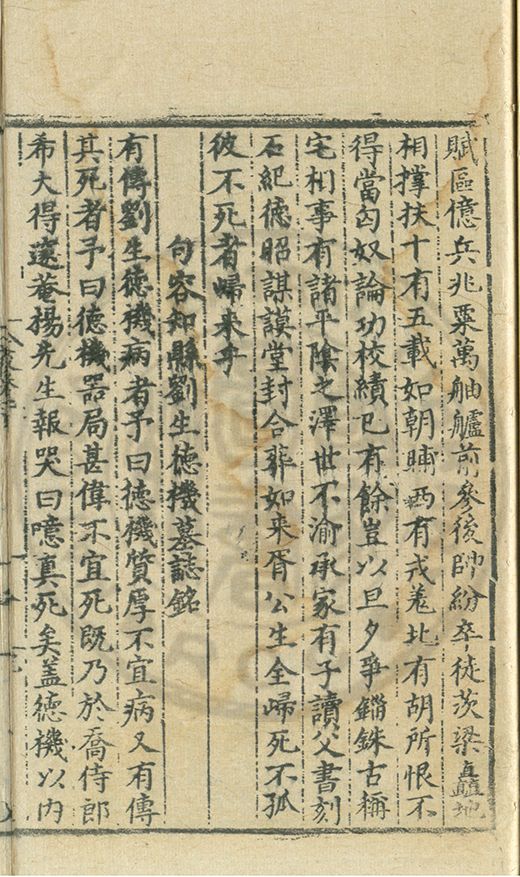 賦區億兵兆粟萬舳艫前參後帥紛卒徒茨梁矗地
相撑扶十有五載如朝晡西有戎羗北有胡所恨不
得當匈奴論功校績已有餘豈以旦夕爭錙銖古稱
宅相事有諸平隂之澤世不渝承家有子讀父書刻
石紀德昭謀謨堂封合葬如來胥公生全歸死不孤
彼不死者歸来乎
句容知縣劉生德機墓誌銘
有傳劉生德機病者予曰德機質厚不宜病又有傳
其死者予曰德機器局甚偉不宜死既乃於喬侍郎
希大得邃菴楊先生報哭曰噫真死矣盖德機以内